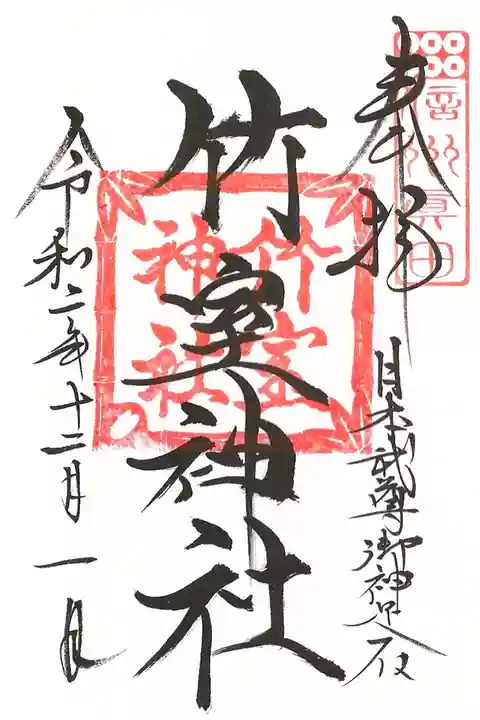 奉拝
信州真田
日本武尊御神足石
竹室神社
竹室
神社
令和二年十二月一日